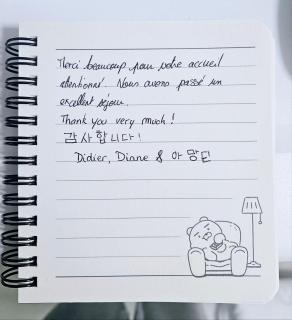 Merci beaucoup pour votre accueil
attentionné. Nous avons passé un
excellent séjour.
Thank you very much!
감사합니다!
Didier, Diane & 아망딘